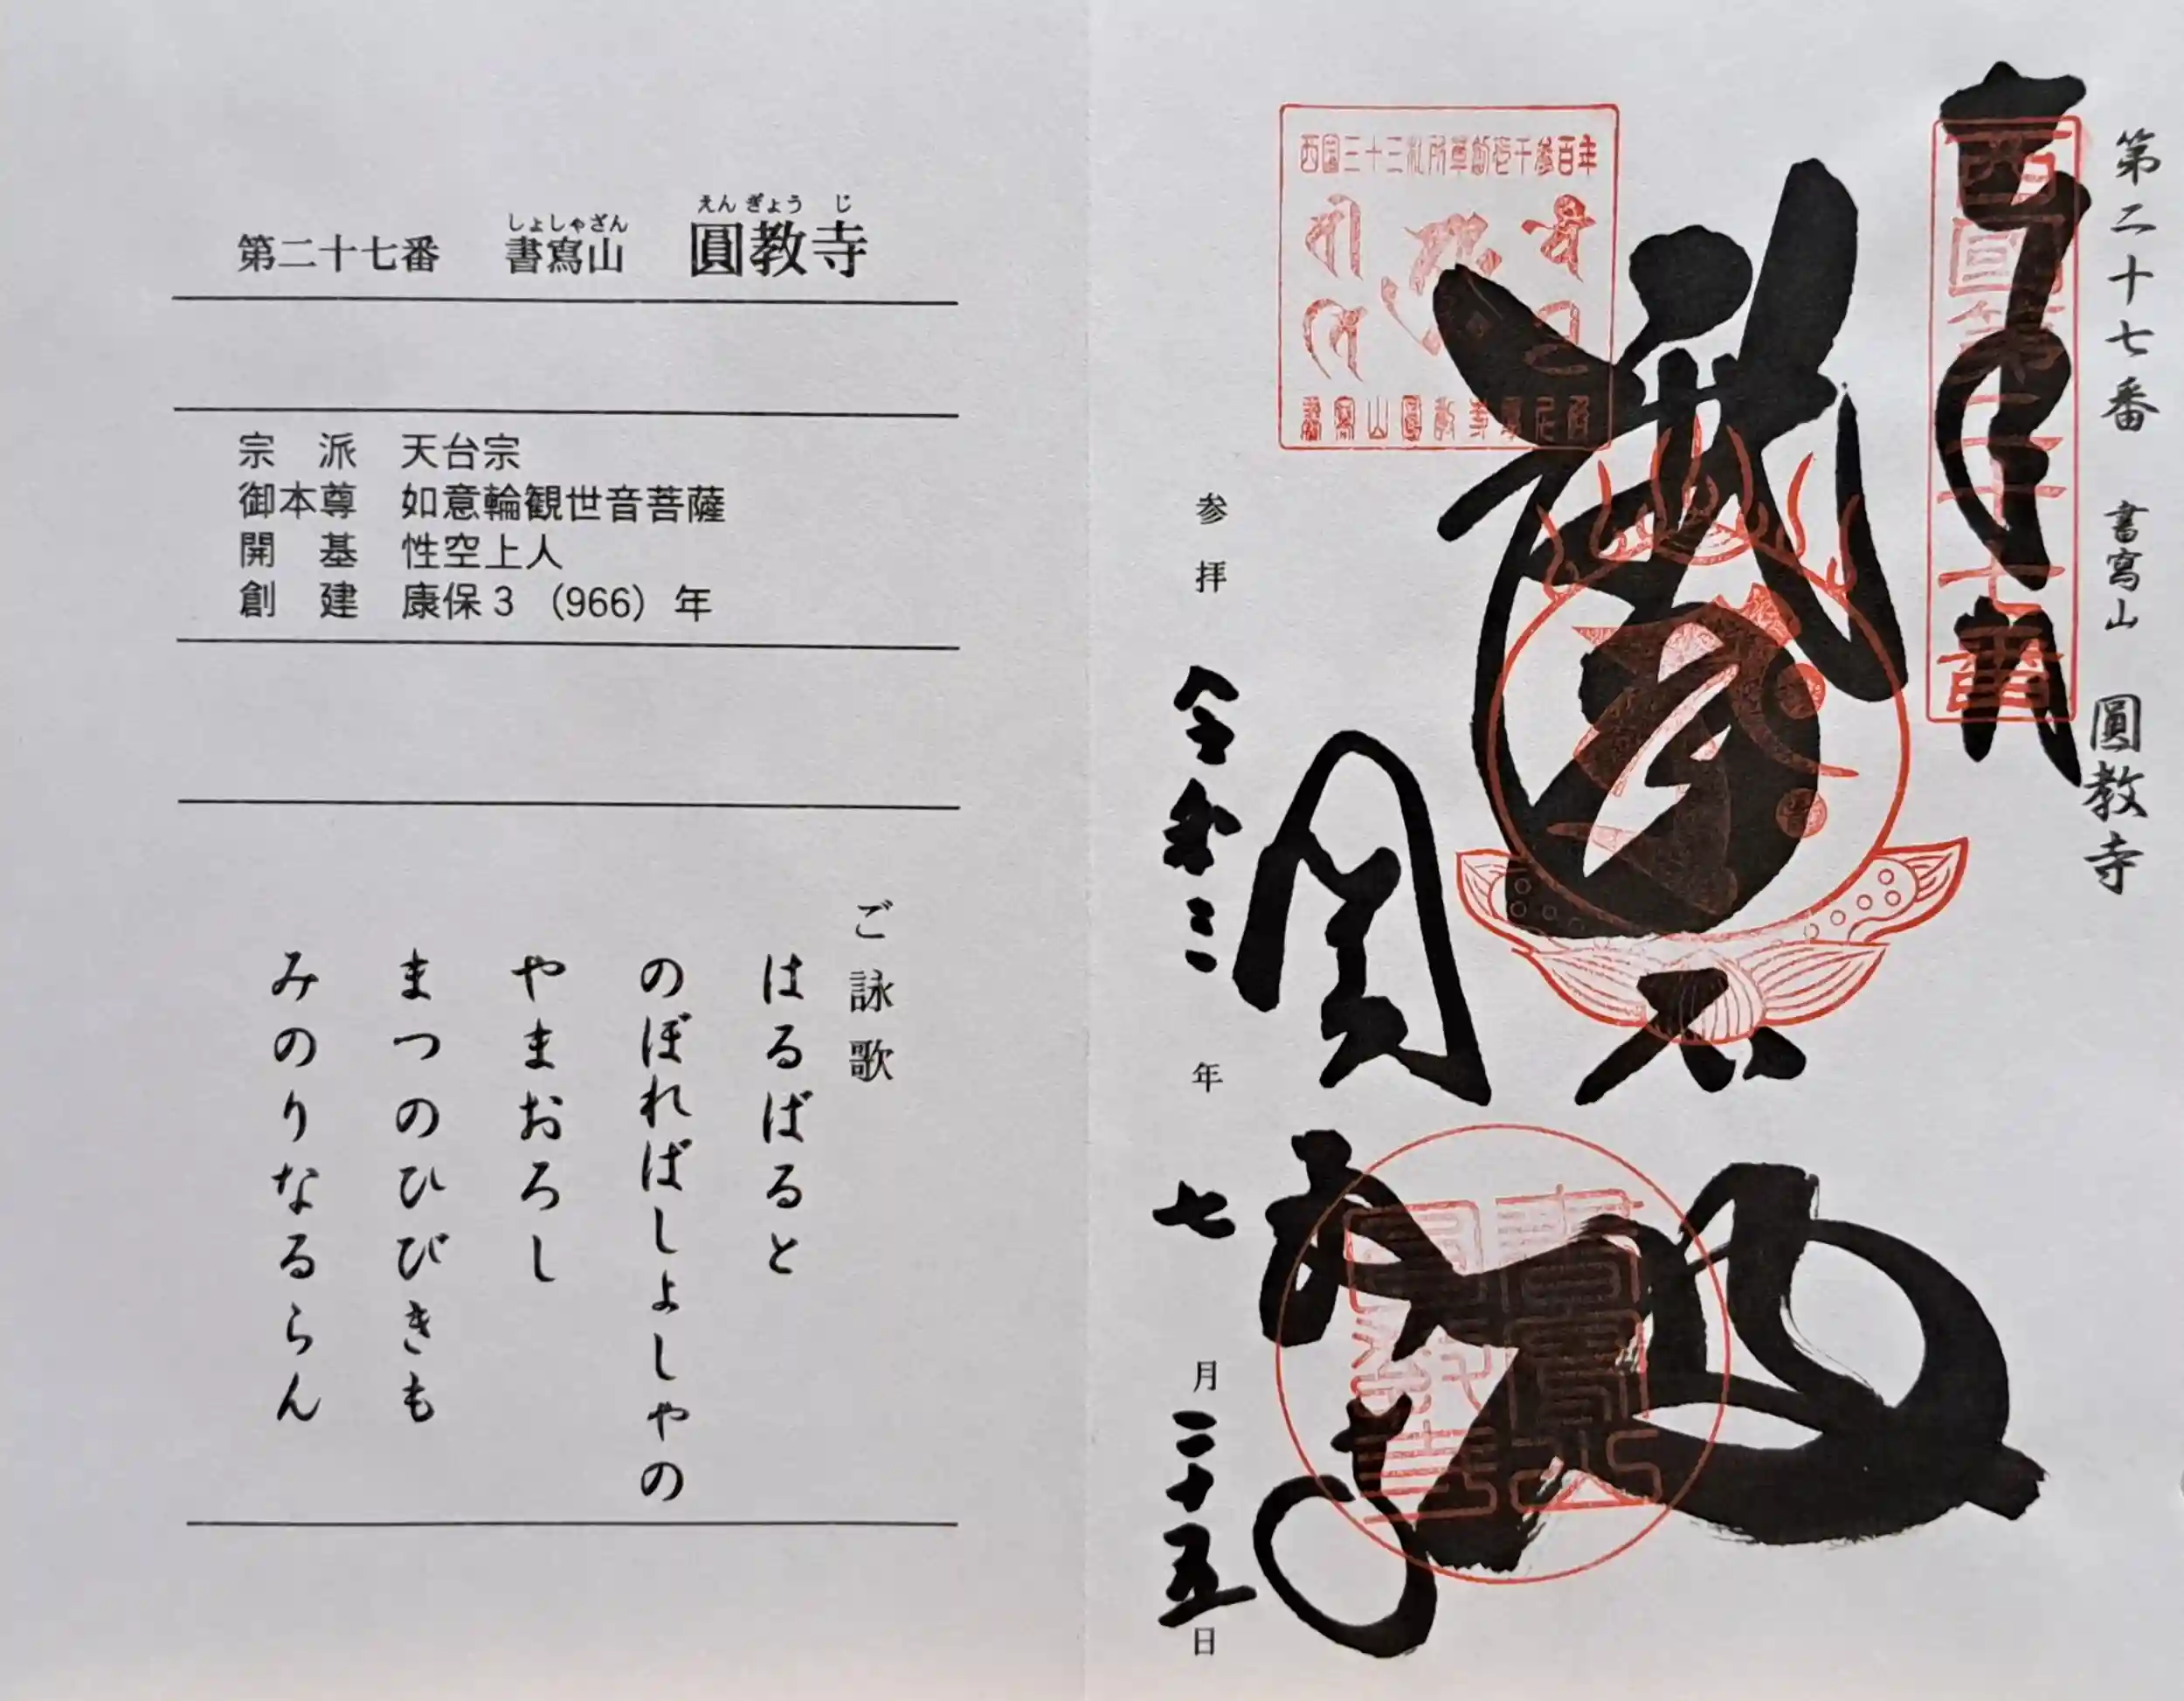 第二十七番 書寫山 圓教寺
しょしゃざん えんぎょうじ
宗 派 天台宗
御本尊 如意輪観世音菩薩
開 基 性空上人
創 建 康保3（966）年
ご詠歌
はるばると
のぼればしよしやの
やまおろし
まつのひびきも
みのりなるらん
第二十七番 書寫山 圓教寺
西國第二十七番
奉拝
西国三十三札所草創壱千参百年
圓教寺
参拝 令和三年 七月二十五日